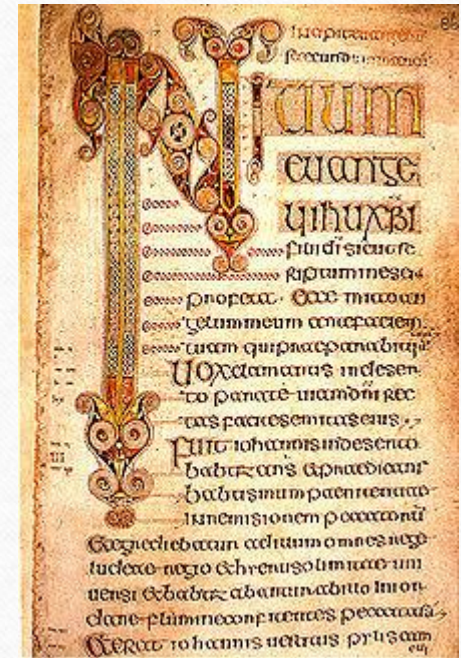 INITIUM
EUANGE
LII IHU XPI
fili di sicut sc
riptum in esaia
profeta · Ecce mitto an
gelum meum ante faciem
tuam qui praeparabit
Uox clamantis in deser
to parate uiam dni rec
tas facite semitas eius
Fuit iohannis in deserto
babtizans & praedicans
babtismum paenitentiae
in remisionem peccatorū
& egrediebatur ad illum omnes
iudeae regio &
uersi & babtizabantur ab illo in ior
dane flumine confitentes peccata
& erat iohannis uestitus pylis cam